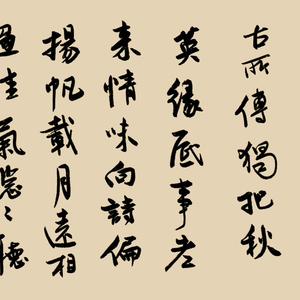 古所傳獨把秋
英緣底事老
來情味向詩偏
揚帆載月遠相
過佳氣葱々聽